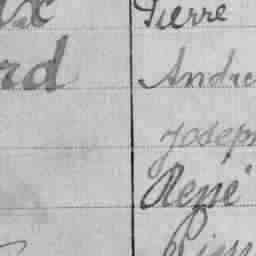 Pierre
rd Andre
Joseph
René